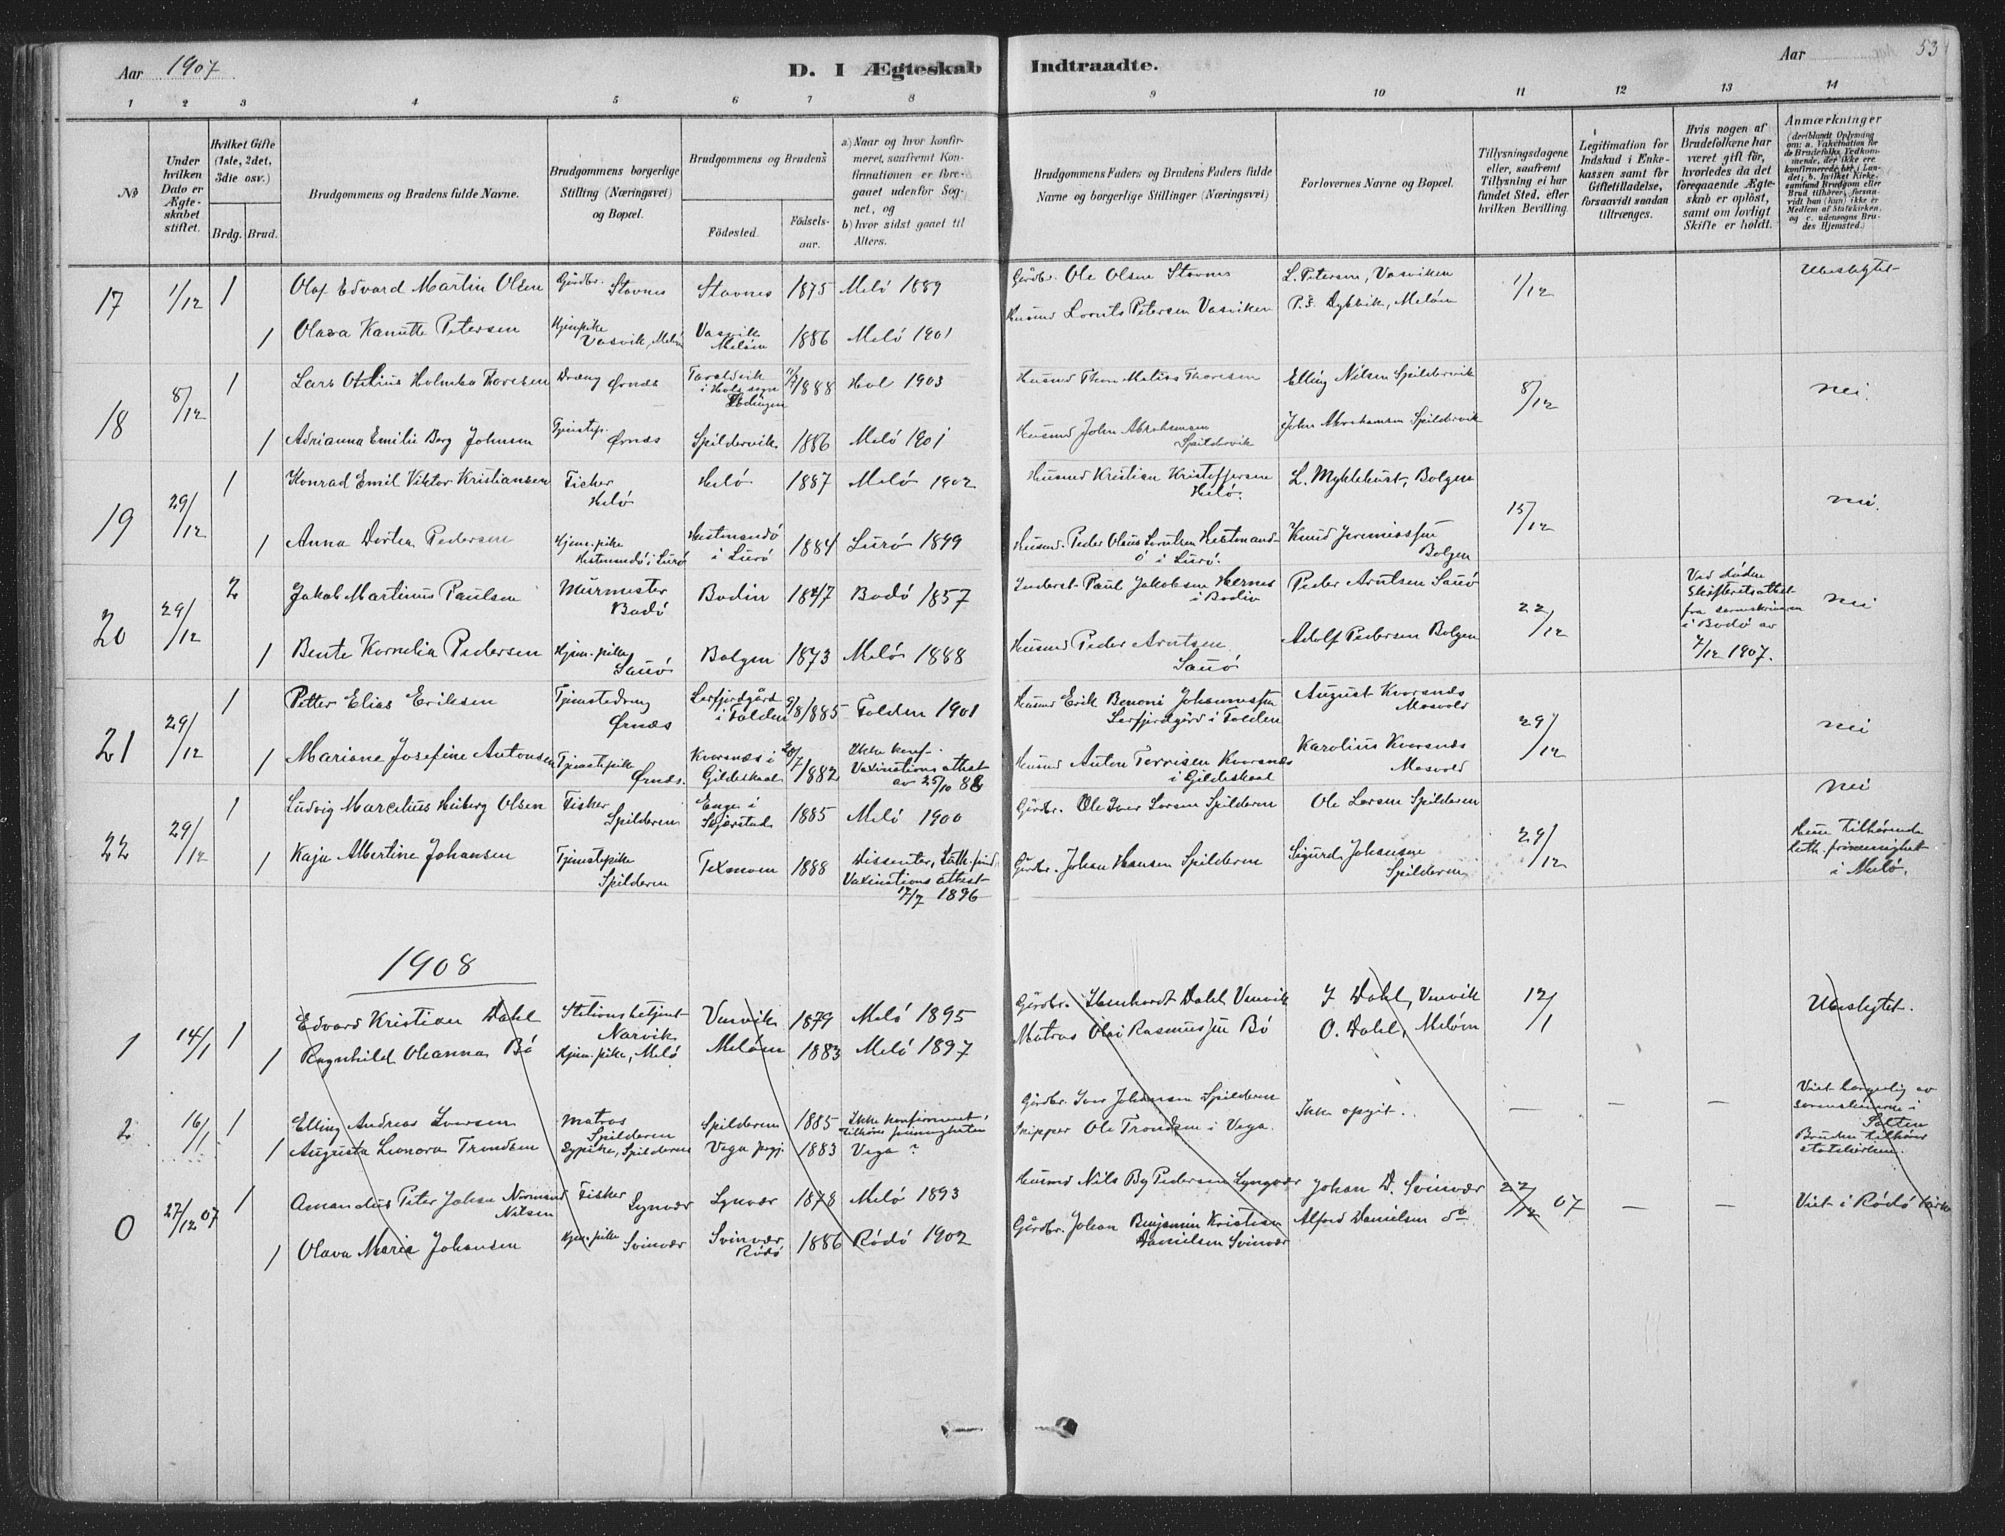 Aar 1907
D. I Ægteskab Indtraadte.
Aar
53
1 2 3 4 5 6 7 8 9 10 11 12 13 14
No
Under hvilken Dato er Ægteskabet stiftet.
Hvilket Gifte (1ste, 2det, 3die osv.)
Brdg. Brud.
Brudgommens og Brudens fulde Navne.
Brudgommens borgerlige Stilling (Næringsvei) og Bopæl.
Brudgommens og Brudens
Födested. Födselsaar.
a) Naar og hvor konfirmeret, saafremt Konfirmationen er foregaaet udenfor Sognet, og
b) hvor sidst gaaet til Alters.
Brudgommens Faders og Brudens Faders fulde Navne og borgerlige Stillinger (Næringsvei)
Forlovernes Navne og Bopæl.
Tillysningsdagene eller, saafremt Tillysning ei har fundet Sted, efter hvilken Bevilling.
Legitimation for Indskud i Enkekassen samt for Giftetilladelse, forsaavidt saadan tiltrænges.
Hvis nogen af Brudefolkene har været gift för, hvorledes da det foregaaende Ægteskab er oplöst, samt om lovligt Skifte er holdt.
Anmærkninger
17 1/12 1 Olaf Edvard Martin Olsen Gårdbr. Stavnes Stavnes 1875 Melö 1889 Gårdbr. Ole Olsen Stavnes L. Petersen, Vasviken 1/12 Ubeslegtet
1 Olava Kanutte Petersen Hjem.pike Vasvik, Melöen Vasvik Melöen 1886 Melö 1901 Husmd Lornts Petersen Vasviken P. S. Dybvik, Melöen
18 8/12 1 Lars Otelius Holmbo Thoresen Dræng Ørnæs Taraldvik i Hols sogn 1888 Hol 1903 Husmd Thor Matias Thoresen Elling Nilsen Spildervik 8/12 nei.
1 Adrianna Emilie Berg Johnsen Tjenstep. Ørnæs Spildervik 1886 Melö 1901 Husmd John Abrahamsen Spildervik John Abrahamsen Spildervik
19 29/12 1 Konrad Emil Viktor Kristiansen Fisker Helö Helö 1887 Melö 1902 Husmd Kristian Kristoffersen Helö. L. Myklebust, Bolgen 15/12 nei.
1 Anna Dortea Pedersen Hjem.pike Hestmandö i Lurö Hestmandö i Lurö 1884 Lurö 1899 Husmd. Peder Olaus Hestmandö i Lurö. Knud Jeremiassen Bolgen
20 29/12 2 Jakob Martinus Paulsen Murmester Bodö Bodin 1847 Bodö 1857 Inderst Paul Jakobsen Hernes i Bodin Peder Arntsen Sauö 22/12 Ved döden Skifteretsattest fra sorenskriveren i Bodö av 7/12 1907. nei
1 Bente Kornelia Pedersen Hjem.pike Sauö Bolgen 1873 Melö 1888 Husmd Peder Arntsen Sauö Adolf Pedersen Bolgen
21 29/12 1 Petter Elias Eriksen Tjenstedreng Ørnæs Lerfjordgård i Folden 9/8 1885 Folden 1901 Husmd Erik Benoni Johannessen Lerfjordgård i Folden August Kvarsnæs Mosvold 29/12 nei
1 Mariane Josefine Antonsen Tjenstepike Ørnæs. Kvarsnæs i Gildeskaal 20/7 1882 Ikke konf. Vaxinationsattest av 25/10 88 Husmd Anton Terrisen Kvarsnæs i Gildeskaal Karolius Kvarsnæs Mosvold
22 29/12 1 Ludvig Marcelius Heiberg Olsen Fisker Spilderen Enge i Skjerstad 1885 Melö 1900 Gårdbr. Ole Iver Larsen Spilderen Ole Larsen Spilderen 29/12 nei
1 Kaja Albertine Johansen Tjenstepike Spilderen Texmoen 1888 Dissenter, Vaxinationsattest 17/7 1896 Gårdbr. Johan Hansen Spilderen Sigurd Johansen Spilderen Hun tilhörende luth. frimenighet i Melö.
1908
1 14/1 1 Edvard Kristian Dahl Stationsbetjent Narvik Vasvik 1879 Melö 1895 Gårdbr. Dahl Vasvik J. Dahl, Vasvik 12/1 Ubeslegtet.
1 Ragnhild Oleanna Bö Hjem.pike, Melö Melöen 1883 Melö 1897 Matros Olai Rasmussen Bö O. Dahl, Melöen
2 16/1 1 Elling Andreas Iversen Matros Spilderen Spilderen 1885 Ikke konfirmeret, tilhörer frimenigheten Gårdbr. Iver Johansen Spilderen Ikke opgit. — — — Viet borgerlig av sorenskriveren i Salten
1 Augusta Leonora Trondsen Sypike, Spilderen Vega pregj. 1883 Vega? Skipper Ole Trondsen i Vega. Bruden tilhører statskirken.
0 27/12 07 1 Amandus Peter Johan Normand Nilsen Fisker Lynvær Lynvær 1878 Melö 1893 Husmd Nils By Pedersen Lyngvær Johan D. Svinvær 22/12 07 — — Viet i Rödö kirke
1 Olava Marie Johansen Hjem.pike Svinvær Svinvær Rödö 1886 Rödö 1902 Gårdbr. Johan Benjamin Kristian Danielsen Svinvær Alfred Danielsen do